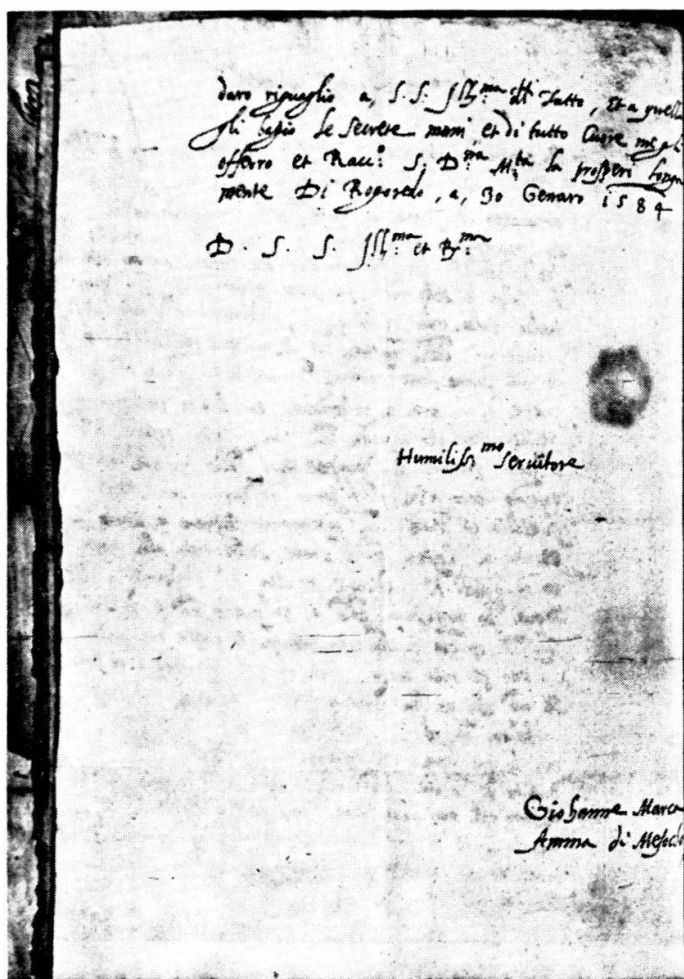 daro riguaglio a, S. S. Ill:ma di Tutto, Et a quella
gli basio le Secrete mani, et di tutto Cuore mi gli
offerro et Racc: S. D:na M:tà la prosperi longa
mente Di Rogoredo, a, 30 Genaro 1584
D. S. S. Ill:ma et R:ma
Humiliss:mo servitore
Giohanne Marca
Amma di Mesocho